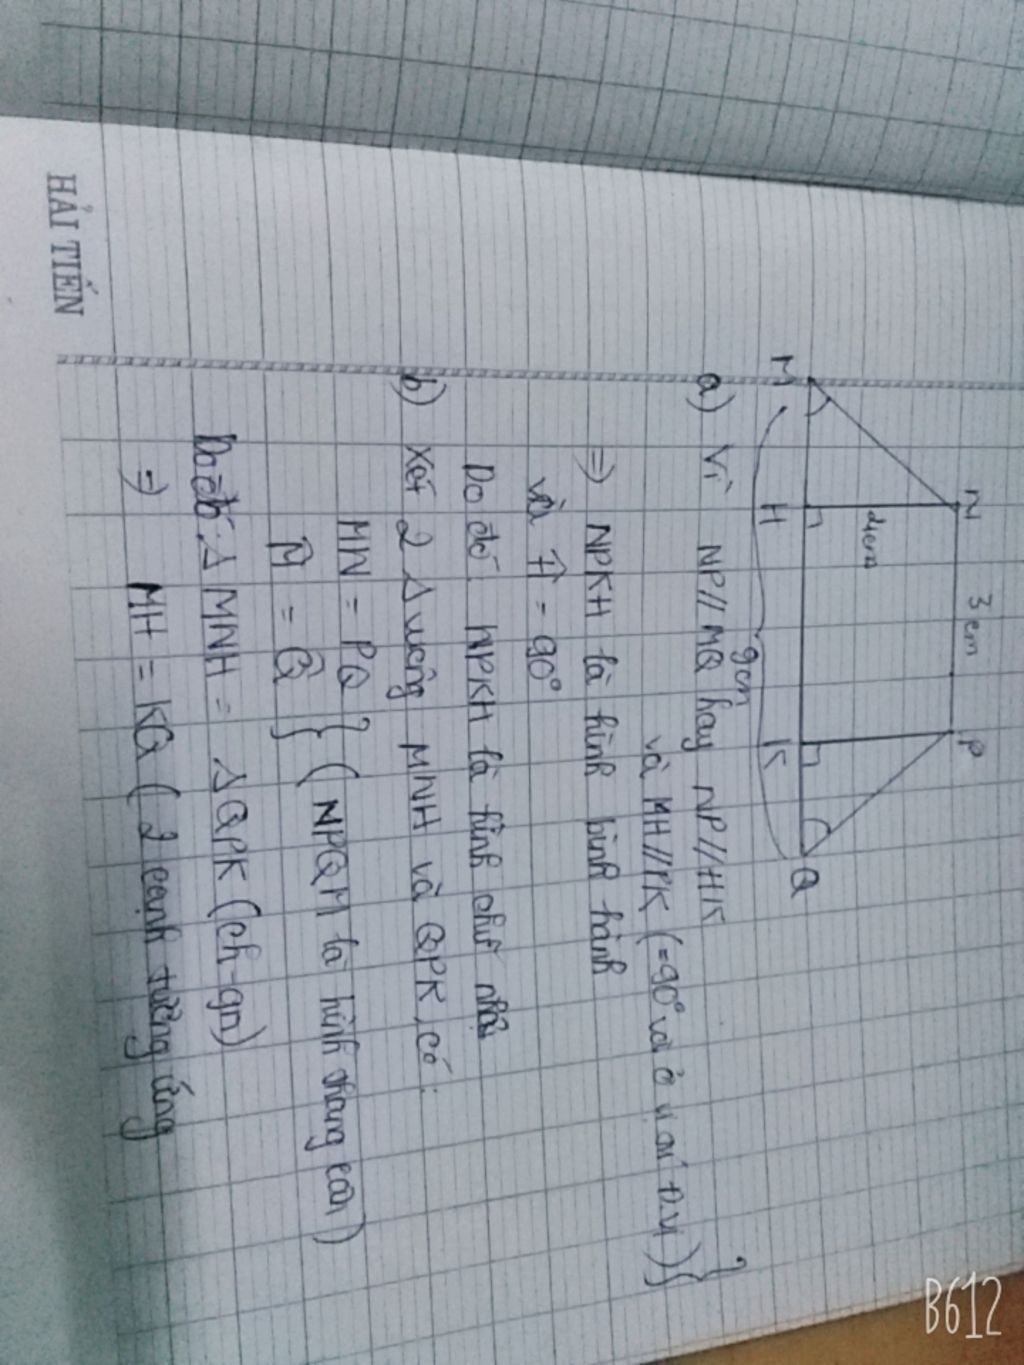 N 3cm P
4cm
M H K Q
9cm
a) Vì NP//MQ hay NP//HK
và MH//PK (=90° và ở vị trí Đ.Vị)
=> NPKH là hình bình hành
và Ĥ = 90°
Do đó NPKH là hình chữ nhật
b) Xét 2 Δ vuông MNH và QPK, có:
MN = PQ
M̂ = Q̂ } (NPQM là hình thang cân)
Do đó: Δ MNH = Δ QPK (ch-gn)
=> MH = KQ (2 cạnh tương ứng
HẢI TIẾN
B612